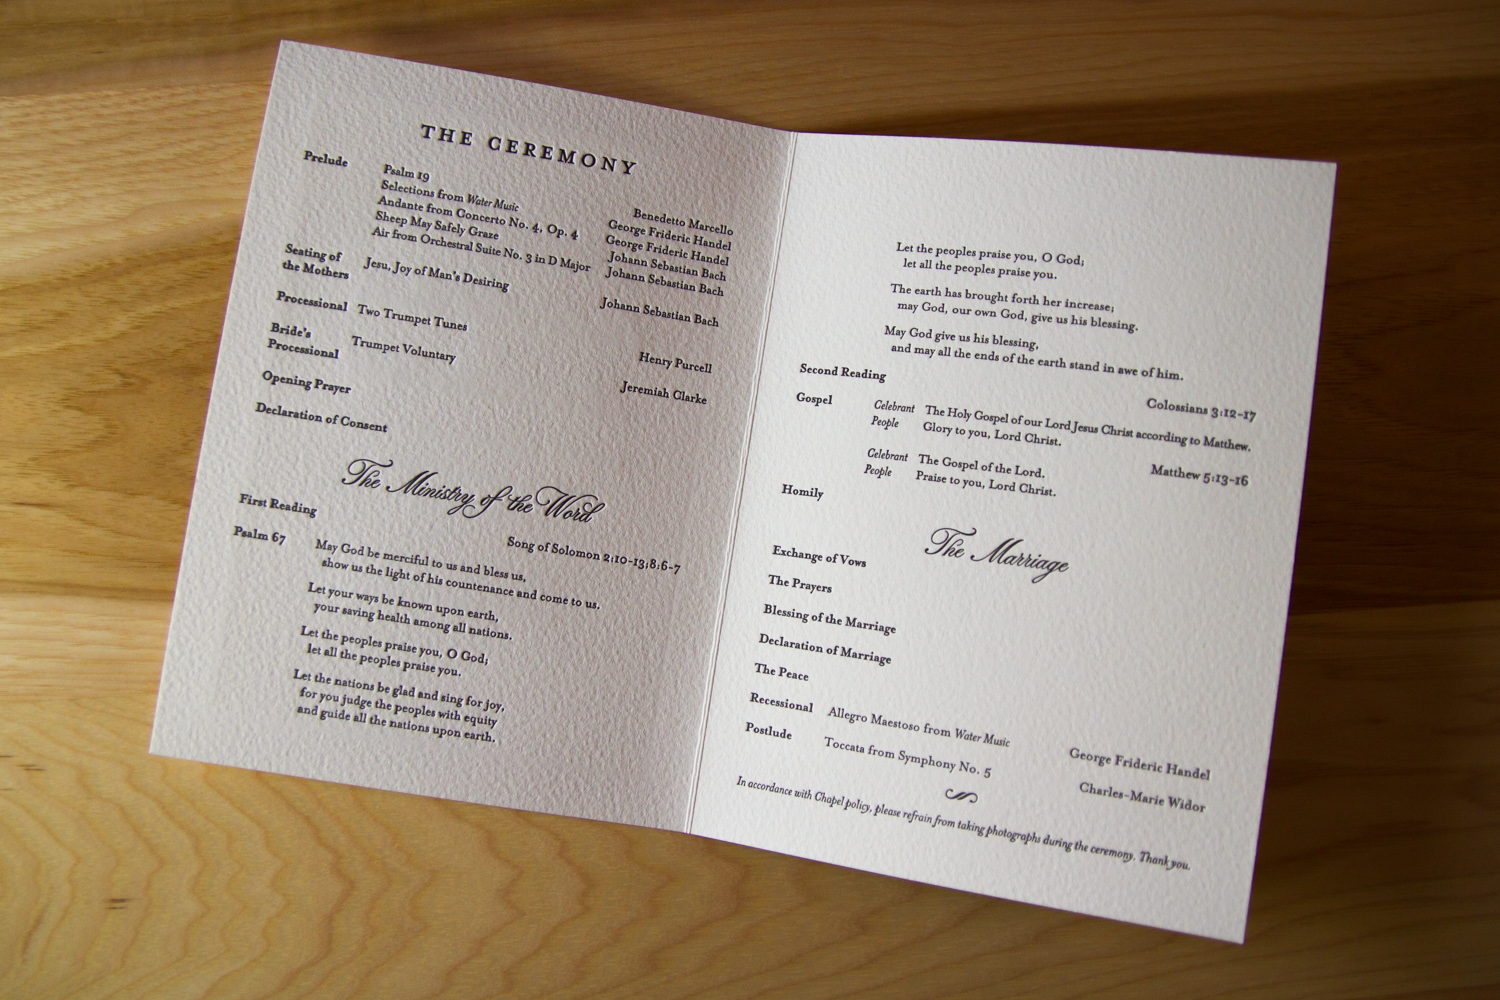 THE CEREMONY
Prelude
Psalm 19 Benedetto Marcello
Selections from Water Music George Frideric Handel
Andante from Concerto No. 4, Op. 4 George Frideric Handel
Sheep May Safely Graze Johann Sebastian Bach
Air from Orchestral Suite No. 3 in D Major Johann Sebastian Bach
Seating of
the Mothers
Jesu, Joy of Man's Desiring Johann Sebastian Bach
Processional Two Trumpet Tunes Henry Purcell
Bride's
Processional
Trumpet Voluntary Jeremiah Clarke
Opening Prayer
Declaration of Consent
The Ministry of the Word
First Reading Song of Solomon 2:10-13;8:6-7
Psalm 67
May God be merciful to us and bless us,
show us the light of his countenance and come to us.
Let your ways be known upon earth,
your saving health among all nations.
Let the peoples praise you, O God;
let all the peoples praise you.
Let the nations be glad and sing for joy,
for you judge the peoples with equity
and guide all the nations upon earth.
Let the peoples praise you, O God;
let all the peoples praise you.
The earth has brought forth her increase;
may God, our own God, give us his blessing.
May God give us his blessing,
and may all the ends of the earth stand in awe of him.
Second Reading Colossians 3:12-17
Gospel Celebrant The Holy Gospel of our Lord Jesus Christ according to Matthew.
People Glory to you, Lord Christ.
Matthew 5:13-16
Celebrant The Gospel of the Lord.
People Praise to you, Lord Christ.
Homily
The Marriage
Exchange of Vows
The Prayers
Blessing of the Marriage
Declaration of Marriage
The Peace
Recessional Allegro Maestoso from Water Music George Frideric Handel
Postlude Toccata from Symphony No. 5 Charles-Marie Widor
In accordance with Chapel policy, please refrain from taking photographs during the ceremony. Thank you.